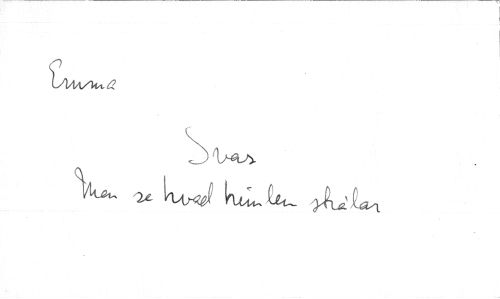 Emma
Svar
Men se hvad himlen strålar